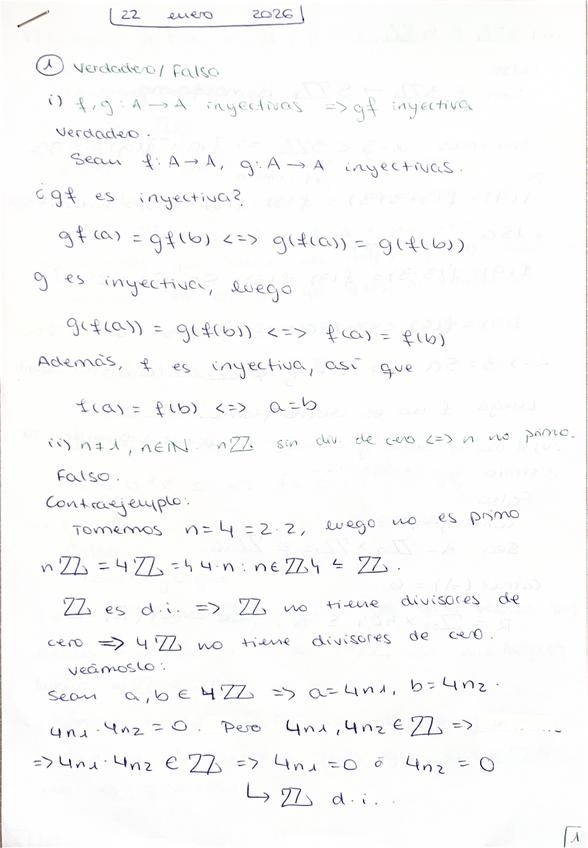 22 enero 2026
① Verdadero/Falso
i) f,g: A→A inyectivas => gf inyectiva
Verdadero.
Sean f: A→A, g: A→A inyectivas.
¿gf es inyectiva?
gf(a) = gf(b) <=> g(f(a)) = g(f(b))
g es inyectiva, luego
g(f(a)) = g(f(b)) <=> f(a) = f(b)
Además, f es inyectiva, así que
f(a) = f(b) <=> a=b
ii) n≠1, n∈ℕ nℤ sin div. de cero <=> n no primo.
Falso.
Contraejemplo:
Tomemos n=4=2·2, luego no es primo
nℤ = 4ℤ = {4·n : n∈ℤ} ≤ ℤ.
ℤ es d.i. => ℤ no tiene divisores de
cero => 4ℤ no tiene divisores de cero.
Veámoslo:
Sean a,b ∈ 4ℤ => a=4n1, b=4n2.
4n1·4n2 = 0. Pero 4n1, 4n2 ∈ ℤ =>
=> 4n1·4n2 ∈ ℤ => 4n1=0 ó 4n2=0
↳ ℤ d.i.
1